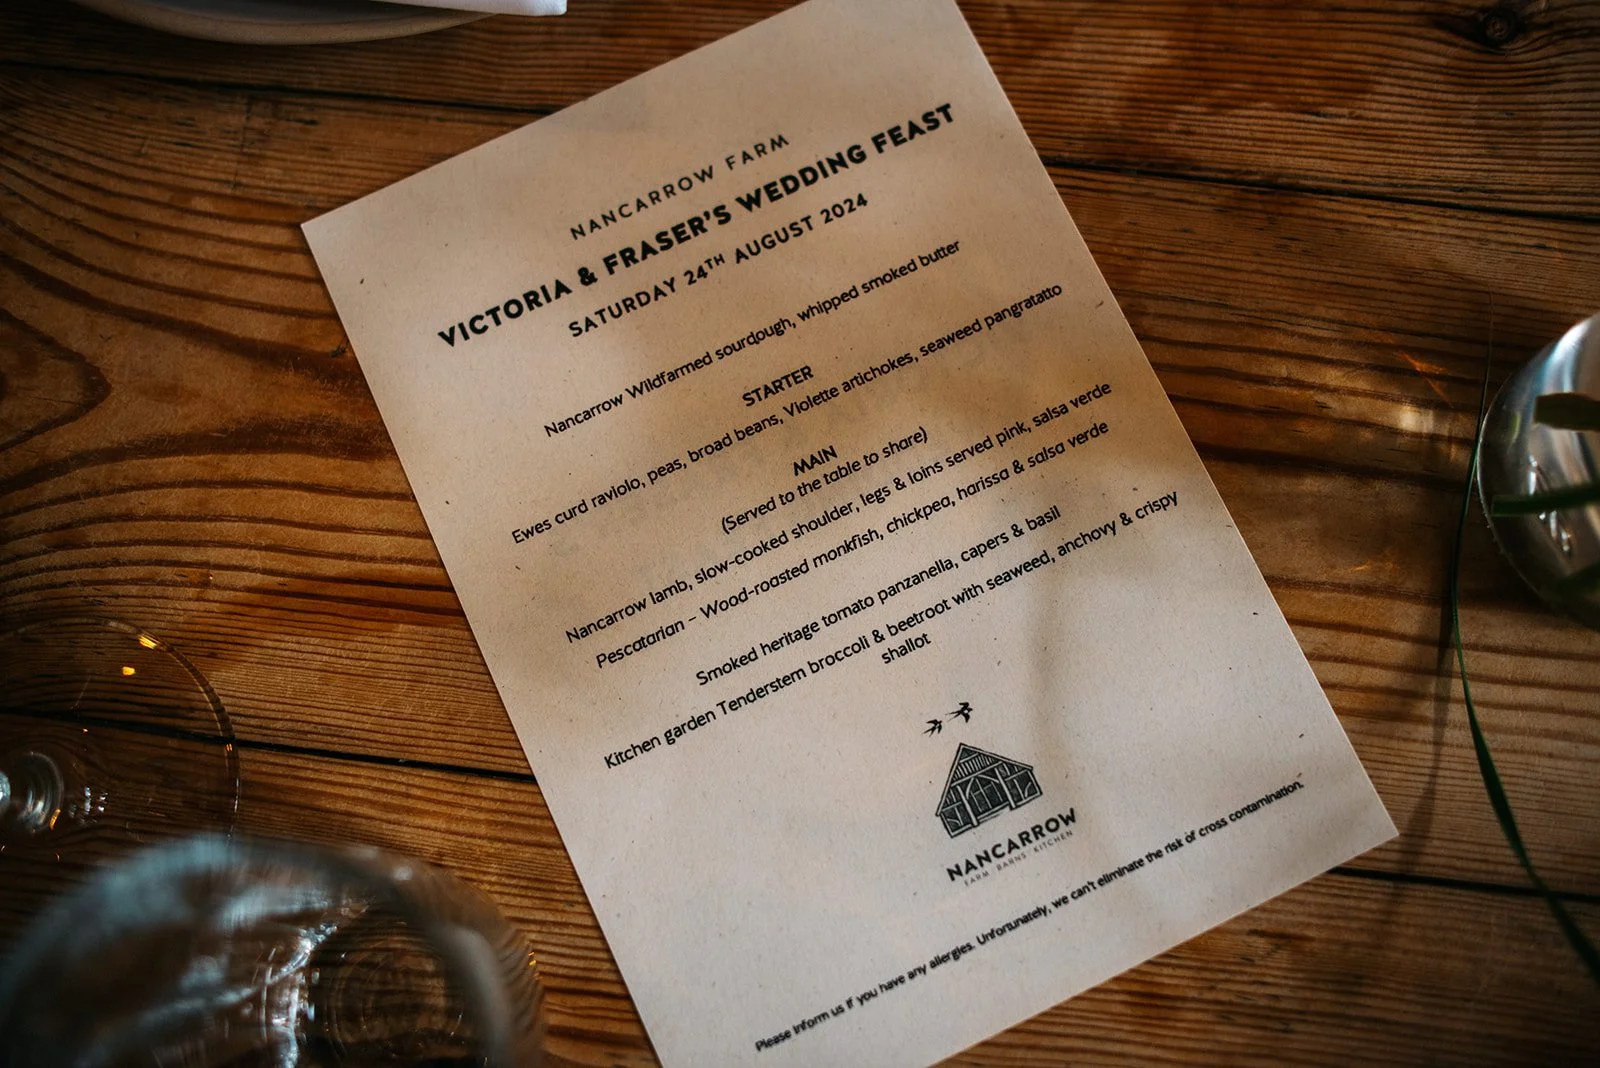 NANCARROW FARM
VICTORIA & FRASER'S WEDDING FEAST
SATURDAY 24TH AUGUST 2024
Nancarrow Wildfarmed sourdough, whipped smoked butter
STARTER
Ewes curd raviolo, peas, broad beans, Violette artichokes, seaweed pangratatto
MAIN
(Served to the table to share)
Nancarrow lamb, slow-cooked shoulder, legs & loins served pink, salsa verde
Pescatarian – Wood-roasted monkfish, chickpea, harissa & salsa verde
Smoked heritage tomato panzanella, capers & basil
Kitchen garden Tenderstem broccoli & beetroot with seaweed, anchovy & crispy
shallot
NANCARROW
FARM · BARNS · KITCHEN
Please inform us if you have any allergies. Unfortunately, we can't eliminate the risk of cross contamination.